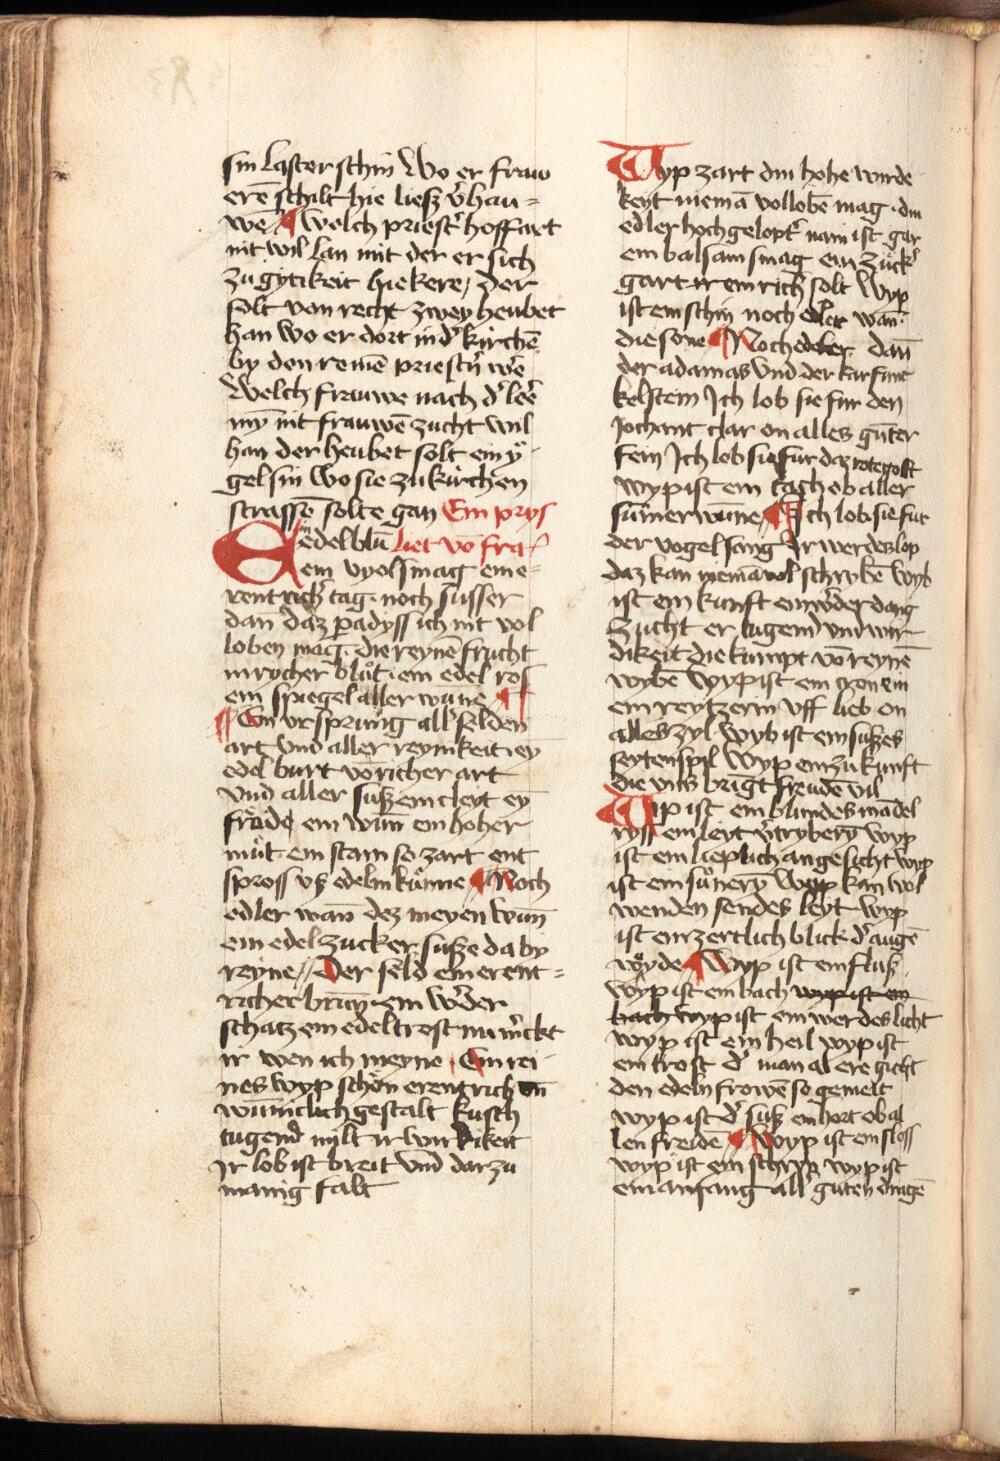 sin laster schin Wo er frau
erē schilt hie liesz v̓hau=
wē ¶ Welch priest̓ hoffart
nit wil lan mit der er sich
zu gytikeit hie kere / der
solt von recht zwey heubet
han wo er dort in d̓ kirchē
by den reinē priestn̄ we̓
Welch frauwe nach d̓ lee̓
my̅ nit frauwē zucht wil
han der heubet solt ein y̎
gel sin Wo sie zu kirchen
strassē solte gan Ein prys
Ein edel blu̅ liet vō fra
ein vyol smag eine=
rentrich̓ tag · noch susser
dan̄ daz padyss ich nit vol
loben mag · die reynē frucht
in rycher blut · ein edel ros
ein spiegel aller wūne ¶
¶ Ein vrsprung all̓ selden
art vnd aller reynikeit · ey̅
edel burt vō richer art
vnd aller susz ein cleyt ey̅
fraͤide ein wūn ein hoher
muͦt · ein stam so zart ent
spross vsz edelm kuͤnne ¶ Noch
edler wan̄ dez meyen wun̄
ein edel zucker susze da by
reyne // Der seld ein erent=
richer brun̄ · ein w̓der
schatz ein edel trost nu m̓ckt
ir wen ich meyne / Ein rei
nes wyp schoͤn erentrich vn̄
wūniclich gestalt kusch
tugend milt ir wirdikeit
Ir lob ist breit vnd darzu
manig falt
Wyp zart din hohe wirde
keyt niemā vollobē mag · din
edler hochgelopt̓ nam ist gar
ein balsam smag ein zuck̓
gart ir einrich̓ solt Wyp
ist ein schin noch edler wan̄
die sōne ¶ Noch edeler dan̄
der adamas vnd der karfun
kelstein Ich lob sie fur den
Jochant clar on alles guter
fein Ich lob sie fur daz rote golt
wyp ist ein tach ob aller
sūmer wūne ¶ Ich lob sie fur
der vogel sang Ir werdez lop
daz kan niemā vol schrybē wyb
ist ein kunft ein w̓der dang
Zucht er tugend vnd wir
dikeit die kumpt vō reynē
wybē Wyp ist ein
ein reytzerin vff lieb on
alles zyl Wyb ist ein suszes
seytenspil Wyp ein zukunft
die vns bringt freudē vil
Wip ist ein blundes mādel
ryss ein leyt v̓tryberȳ wyp
ist ein lieplich angesicht wyp
ist ein suͦnerȳ Wyp kan wol
wenden sendes leyt wyp
ist ein zertlich blick d̓ augē
woͤyde ¶ Wyp ist ein flusz
wyp ist ein bach wyp ist ein
bach wyp ist ein werdes licht
wyp ist ein heil wyp ist
ein trost d̓ man al ere gicht
den edeln frowē so gemeit
wyp ist d̓ susz ein hort ob al
len freide ¶ Wyp ist ein sloss
wyp ist ein schryn wyp ist
ein anfang all̓ guten dingē